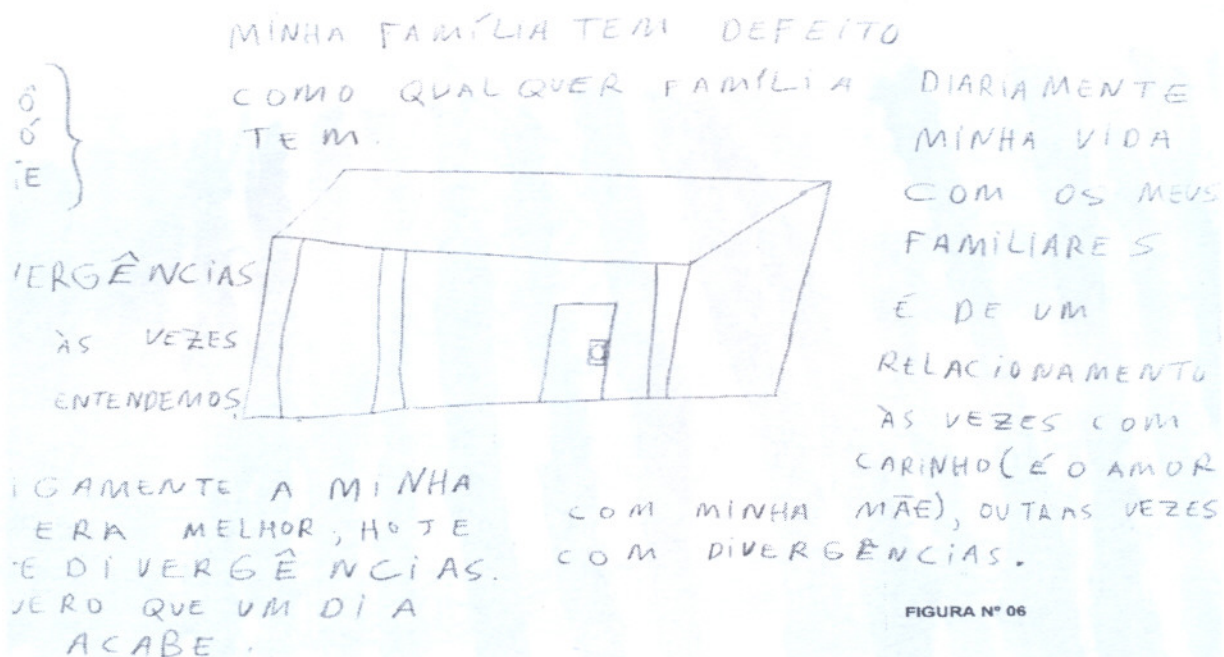 MINHA FAMÍLIA TEM DEFEITO
COMO QUALQUER FAMÍLIA
TEM.
Ô
Ó
ÃE
VERGÊNCIAS
ÀS VEZES
ENTENDEMOS
IGAMENTE A MINHA
ERA MELHOR, HOJE
E DIVERGÊNCIAS.
UERO QUE UM DIA
ACABE.
DIARIAMENTE
MINHA VIDA
COM OS MEUS
FAMILIARES
É DE UM
RELACIONAMENTO
ÀS VEZES COM
CARINHO (É O AMOR
COM MINHA MÃE), OUTRAS VEZES
COM DIVERGÊNCIAS.
FIGURA Nº 06